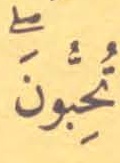 تُحِبُّونَ ۗ